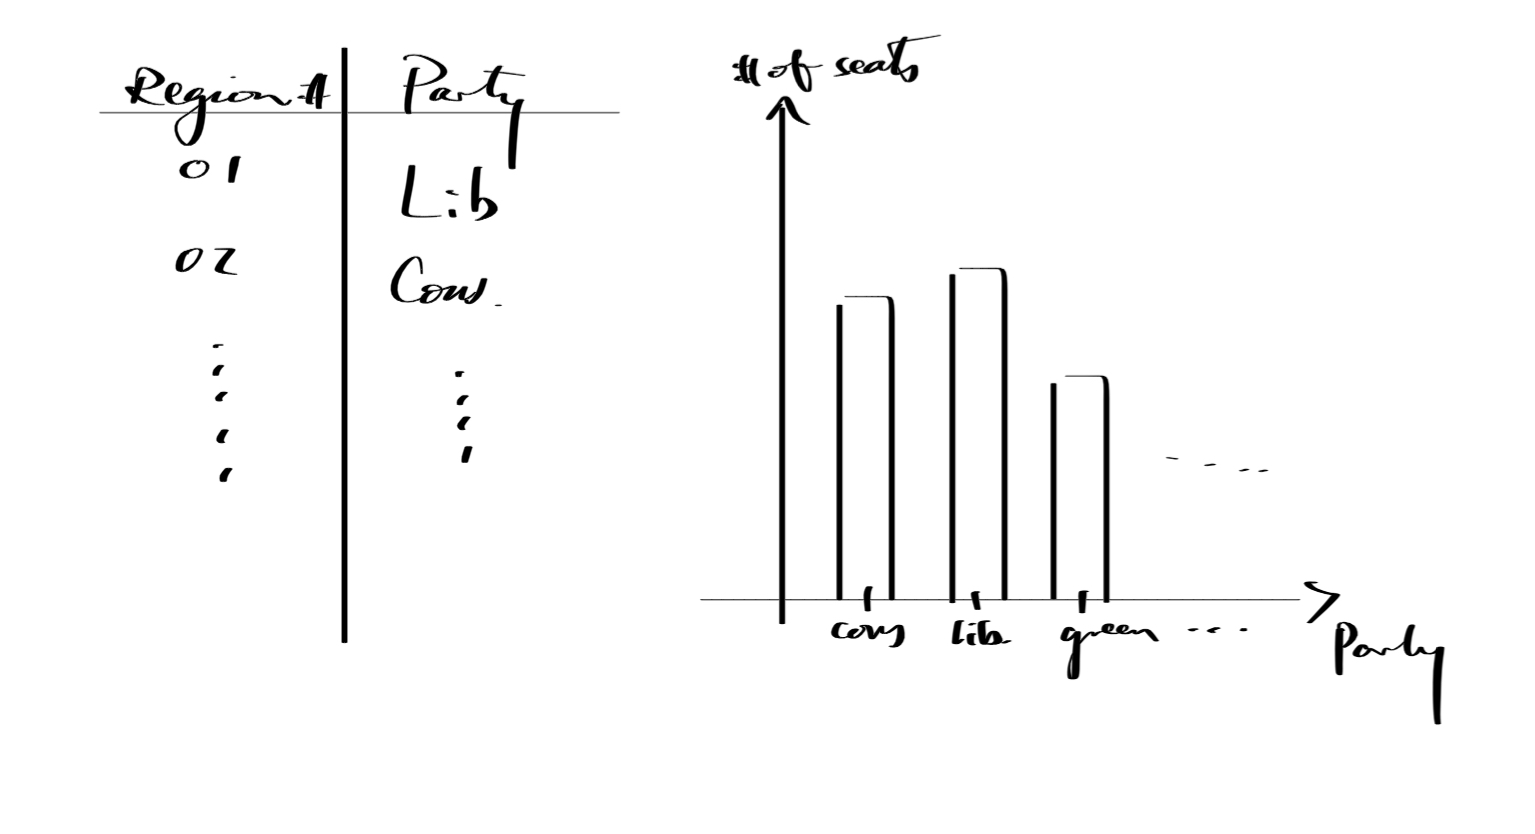 Region # Party
01 Lib
02 Cons.
# of seats
cons lib. green ....
Party